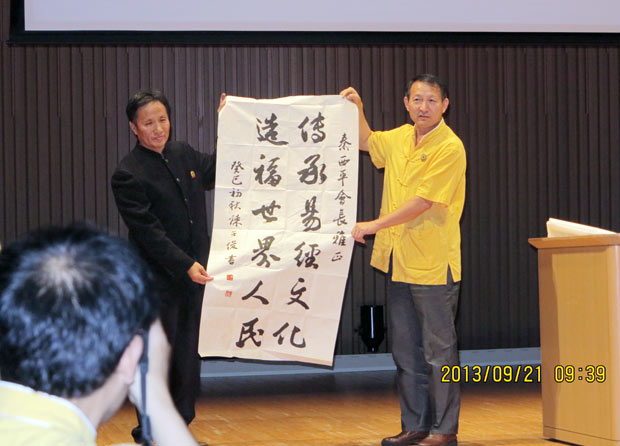 秦西平会長雅正
傳承易經文化
造福世界人民
癸巳初秋
2013/09/21 09:39